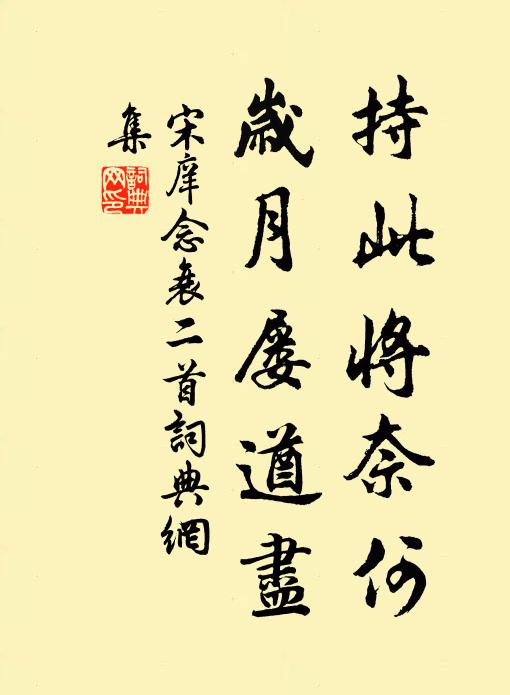 持此將奈何
歲月屢遒盡
宋庠念衰二首詞典網
集
詞典
网印